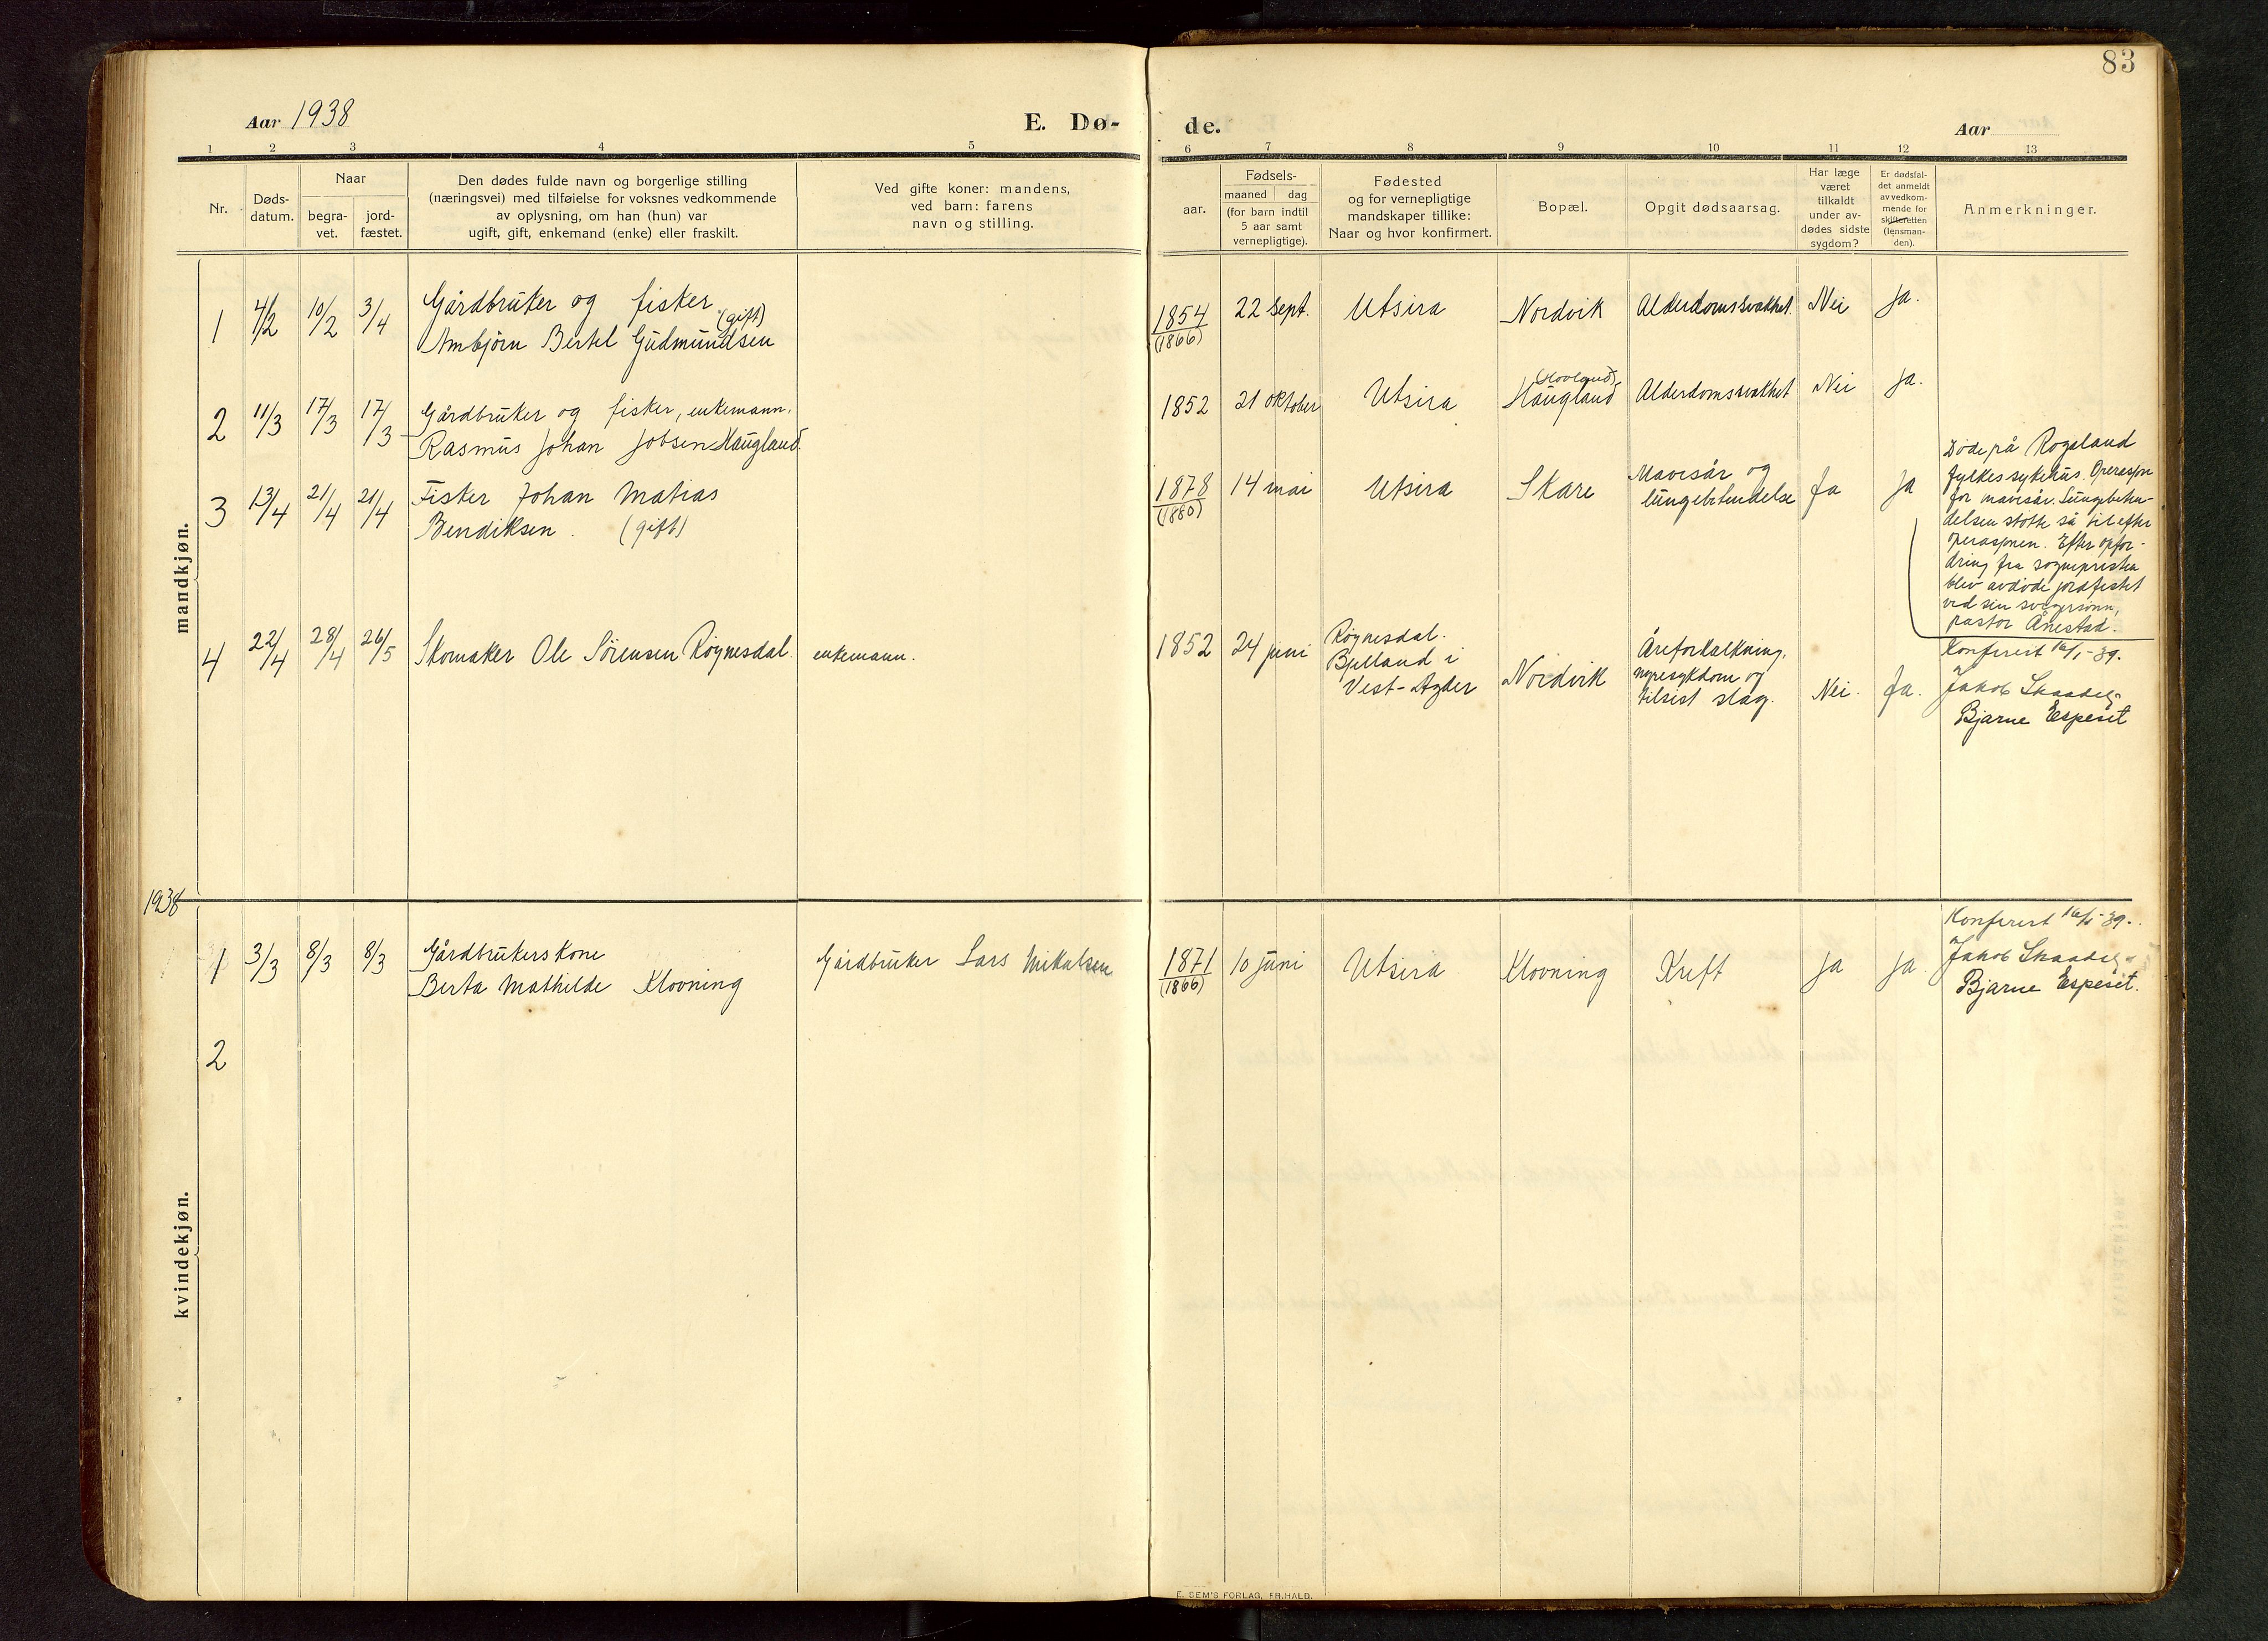 83
Aar 1938
E. Dø-
de.
Aar
1 2 3 4 5 6 7 8 9 10 11 12 13
Nr.
Døds-
datum.
Naar
begra-
vet.
jord-
fæstet.
Den dødes fulde navn og borgerlige stilling
(næringsvei) med tilføielse for voksnes vedkommende
av oplysning, om han (hun) var
ugift, gift, enkemand (enke) eller fraskilt.
Ved gifte koner: mandens,
ved barn: farens
navn og stilling.
aar.
Fødsels-
maaned dag
(for barn indtil
5 aar samt
vernepligtige).
Fødested
og for vernepligtige
mandskaper tillike:
Naar og hvor konfirmert.
Bopæl.
Opgit dødsaarsag.
Har læge
været
tilkaldt
under av-
dødes sidste
sygdom?
Er dødsfal-
det anmeldt
av vedkom-
mende for
skifteretten
(lensman-
den).
Anmerkninger.
mandkjøn.
1 4/2 10/2 3/4
Gårdbruker og fisker
(gift)
Ambjørn Bertel Gudmundsen
1854
(1866)
22 sept. Utsira Nordvik Alderdomssvakhet. Nei ja.
2 11/3 17/3 17/3
Gårdbruker og fisker, enkemann.
Rasmus Johan Jobsen Haugland.
1852 21 oktober Utsira
(Hovland)
Haugland
Alderdomssvakhet Nei ja.
3 13/4 21/4 21/4
Fisker Johan Matias
Bendiksen. (gift)
1878
(1880)
14 mai Utsira Skare
Mavesår og
lungebetendelse
Ja ja
Døde på Rogaland
fylkes sykehus. Operasjon
for mavesår. Lungebeten-
delsen støtte så til efter
operasjonen. Efter opfor-
dring fra sognepresten
blev avdøde jordfestet
ved sin svigersønn,
pastor Ånestad.
4 22/4 28/4 26/5
Skomaker Ole Sørensen Røynesdal. enkemann.
1852 24 juni
Røynesdal.
Bjelland i
Vest-Agder
Nordvik
Åreforkalkning,
nyresykdom og
tilsist slag.
Nei. Ja.
Konferert 16/1-39.
Jakob Skaadel
Bjarne Espeset
1938
kvindekjøn.
1 3/3 8/3 8/3
Gårdbrukerskone
Berta Mathilde Klovning
Gårdbruker Lars Mikalsen
1871
(1866)
10 juni Utsira Klovning Kreft ja ja.
Konferert 16/1-39.
Jakob Skaadel
Bjarne Espeset.
2
E. SEM'S FORLAG, FR.HALD.